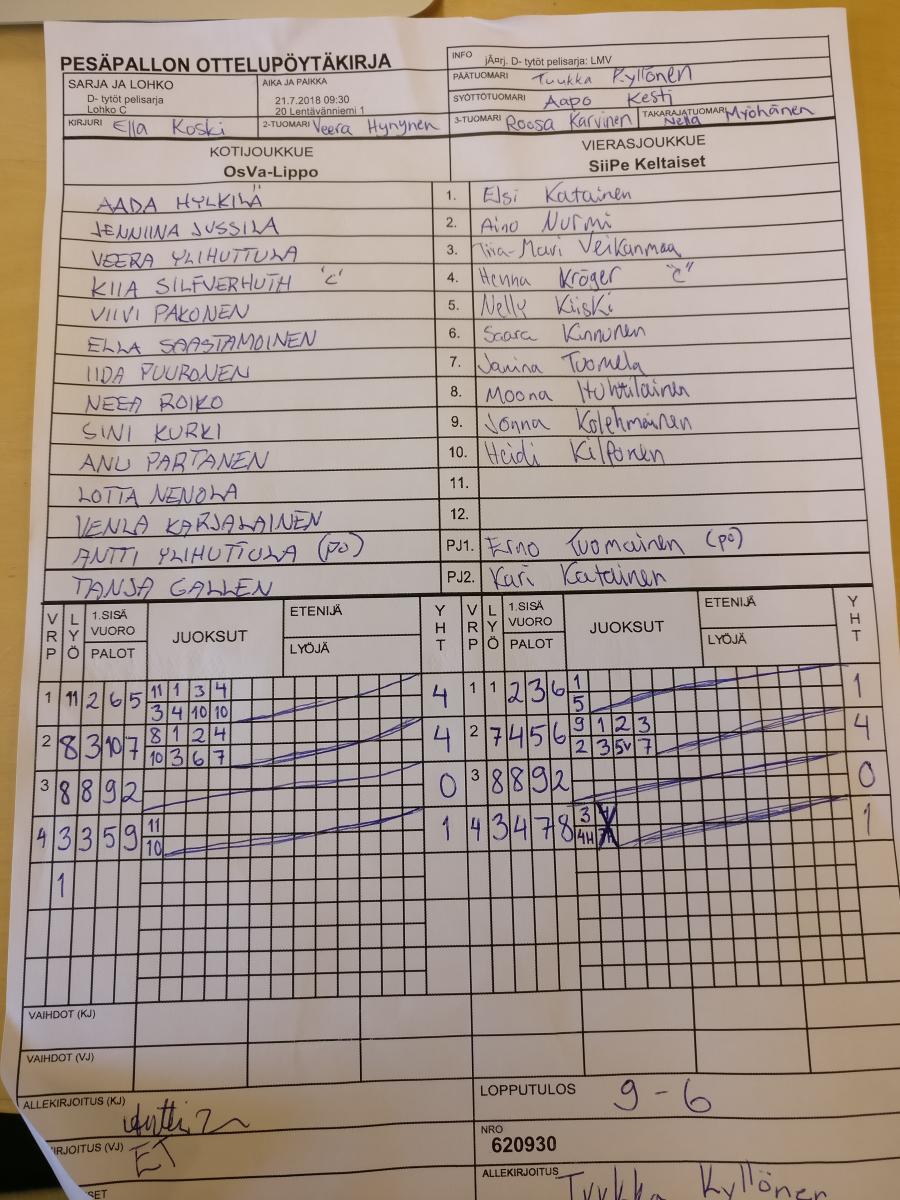 PESÄPALLON OTTELUPÖYTÄKIRJA
INFO jÄ¤rj. D- tytöt pelisarja: LMV
PÄÄTUOMARI Tuukka Kyllönen
SARJA JA LOHKO
D- tytöt pelisarja
Lohko C
AIKA JA PAIKKA
21.7.2018 09:30
20 Lentävänniemi 1
SYÖTTÖTUOMARI Aapo Kesti
KIRJURI Ella Koski 2-TUOMARI Veera Hynynen 3-TUOMARI Roosa Karvinen TAKARAJATUOMARI Nella Myöhänen
KOTIJOUKKUE VIERASJOUKKUE
OsVa-Lippo SiiPe Keltaiset
AADA HYLKILÄ 1. Elsi Katainen
JENNIINA JUSSILA 2. Aino Nurmi
VEERA YLIHUTTULA 3. Tiia-Mari Veikanmaa
KIIA SILFVERHUTH 'c' 4. Henna Kröger "c"
VIIVI PAKONEN 5. Nelly Kiiski
ELLA SAASTAMOINEN 6. Saara Kinnunen
IIDA PUURONEN 7. Janina Tuomela
NEEA ROIKO 8. Moona Huhtilainen
SINI KURKI 9. Jonna Kolehmainen
ANU PARTANEN 10. Heidi Kilponen
LOTTA NENOLA 11.
VENLA KARJALAINEN 12.
ANTTI YLIHUTTULA (po) PJ1. Erno Tuomainen (po)
TANJA GALLEN PJ2. Kari Katainen
VRP LYÖ 1.SISÄ VUORO PALOT JUOKSUT ETENIJÄ LYÖJÄ YHT VRP LYÖ 1.SISÄ VUORO PALOT JUOKSUT ETENIJÄ LYÖJÄ YHT
1 11 2 6 5 11 1 3 4 4 1 1 2 3 6 1 1
3 4 10 10 5
2 8 3 10 7 8 1 2 4 4 2 7 4 5 6 9 1 2 3 4
10 3 6 7 2 3 5v 7
3 8 8 9 2 0 3 8 8 9 2 0
4 3 3 5 9 11 1 4 3 4 7 8 3 1
10 4H
1
VAIHDOT (KJ)
VAIHDOT (VJ)
ALLEKIRJOITUS (KJ) LOPPUTULOS 9 - 6
IRJOITUS (VJ) ET NRO
620930
SET ALLEKIRJOITUS Tuukka Kyllönen